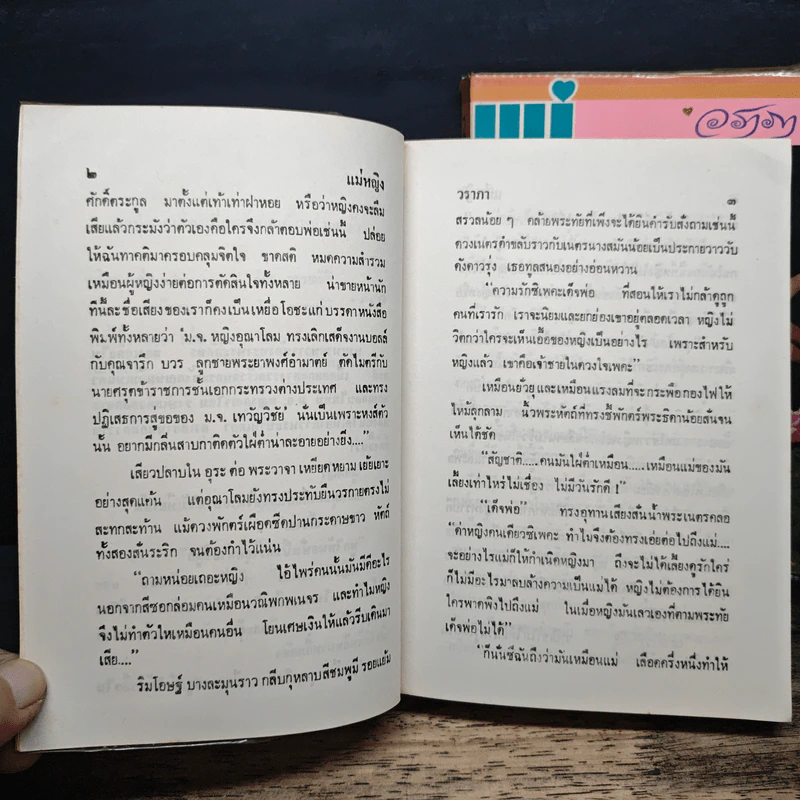 ๒ แม่หญิง
ศักดิ์ตระกูล มาตั้งแต่เท้าเท่าฝาหอย หรือว่าหญิงคงจะลืม
เสียแล้วกระมังว่าตัวเองคือใครจึงกล้าตอบพ่อเช่นนี้ ปล่อย
ให้ฉันทาคติมาครอบคลุมจิตใจ ขาดสติ หมดความสำรวม
เหมือนผู้หญิงง่ายต่อการตัดสินใจทั้งหลาย น่าขายหน้านัก
ทีนี้ละชื่อเสียงของเราก็คงเป็นเหยื่อโอชะแก่บรรดาหนังสือ
พิมพ์ทั้งหลายว่า ม.จ. หญิงอุณาโลม ทรงเลิกเสด็จงานบอลล์
กับคุณจารึก บวร ลูกชายพระยาพงศ์อำมาตย์ ตัดไมตรีกับ
นายศรุตข้าราชการชั้นเอกกระทรวงต่างประเทศ และทรง
ปฏิเสธการสู่ขอของ ม.จ. เทวัญวิชัย นั่นเป็นเพราะหงส์ตัว
นั้น อยากมีกลิ่นสาบกาติดตัวใฝ่ต่ำน่าละอายอย่างยิ่ง...."
เสียวปลาบใน อุระ ต่อ พระวาจา เหยียด หยาม เย้ยเยาะ
อย่างสุดแค้น แต่อุณาโลมยังทรงประทับยืนวรกายตรงไม่
สะทกสะท้าน แม้ดวงพักตร์เผือดซีดปานกระดาษขาว หัตถ์
ทั้งสองสั่นระริก จนต้องกำไว้แน่น
"ถามหน่อยเถอะหญิง ไอ้ไพร่คนนั้นมันมีดีอะไร
นอกจากสีซอกล่อมคนเหมือนวณิพกพเนจร และทำไมหญิง
จึงไม่ทำตัวให้เหมือนคนอื่น โยนเศษเงินให้แล้วรีบเดินมา
เสีย...."
ริมโอษฐ์ บางละมุนราว กลีบกุหลาบสีชมพูมี รอยแย้ม
วราภา ๓
สรวลน้อย ๆ คล้ายพระทัยที่เพิ่งจะได้ยินคำรับสั่งถามเช่นนี้
ดวงเนตรดำขลับราวกับเนตรนางสมันน้อยเป็นประกายวาววับ
ดังดาวรุ่ง เธอทูลสนองอย่างอ่อนหวาน
"ความรักซิเพคะเด็จพ่อ ที่สอนให้เราไม่กล้าดูถูก
คนที่เรารัก เราจะนิยมและยกย่องเขาอยู่ตลอดเวลา หญิงไม่
วิตกว่าใครจะเห็นเอื้อของหญิงเป็นอย่างไร เพราะสำหรับ
หญิงแล้ว เขาคือเจ้าชายในดวงใจเพคะ"
เหมือนยั่วยุและเหมือนแรงลมที่จะกระพือกองไฟให้
ไหม้ลุกลาม นิ้วพระหัตถ์ที่ทรงชี้พักตร์พระธิดาน้อยสั่นจน
เห็นได้ชัด
"สัญชาติ.....คนมันใฝ่ต่ำเหมือน.....เหมือนแม่ของมัน
เลี้ยงเท่าไหร่ไม่เชื่อง ไม่มีวันรักดี !"
"เด็จพ่อ" ทรงอุทานเสียงสั่นน้ำพระเนตรคลอ
"ด่าหญิงคนเดียวซิเพคะ ทำไมจึงต้องทรงเอ่ยต่อไปถึงแม่....
จะอย่างไรแม่ก็ให้กำเนิดหญิงมา ถึงจะไม่ได้เลี้ยงดูรักใคร่
ก็ไม่มีอะไรมาลบล้างความเป็นแม่ได้ หญิงไม่ต้องการได้ยิน
ใครพาดพิงไปถึงแม่ ในเมื่อหญิงมันเลวเองที่ตามพระทัย
เด็จพ่อไม่ได้"
"ก็นั่นซีฉันถึงว่ามันเหมือนแม่ เลือดครึ่งหนึ่งทำให้